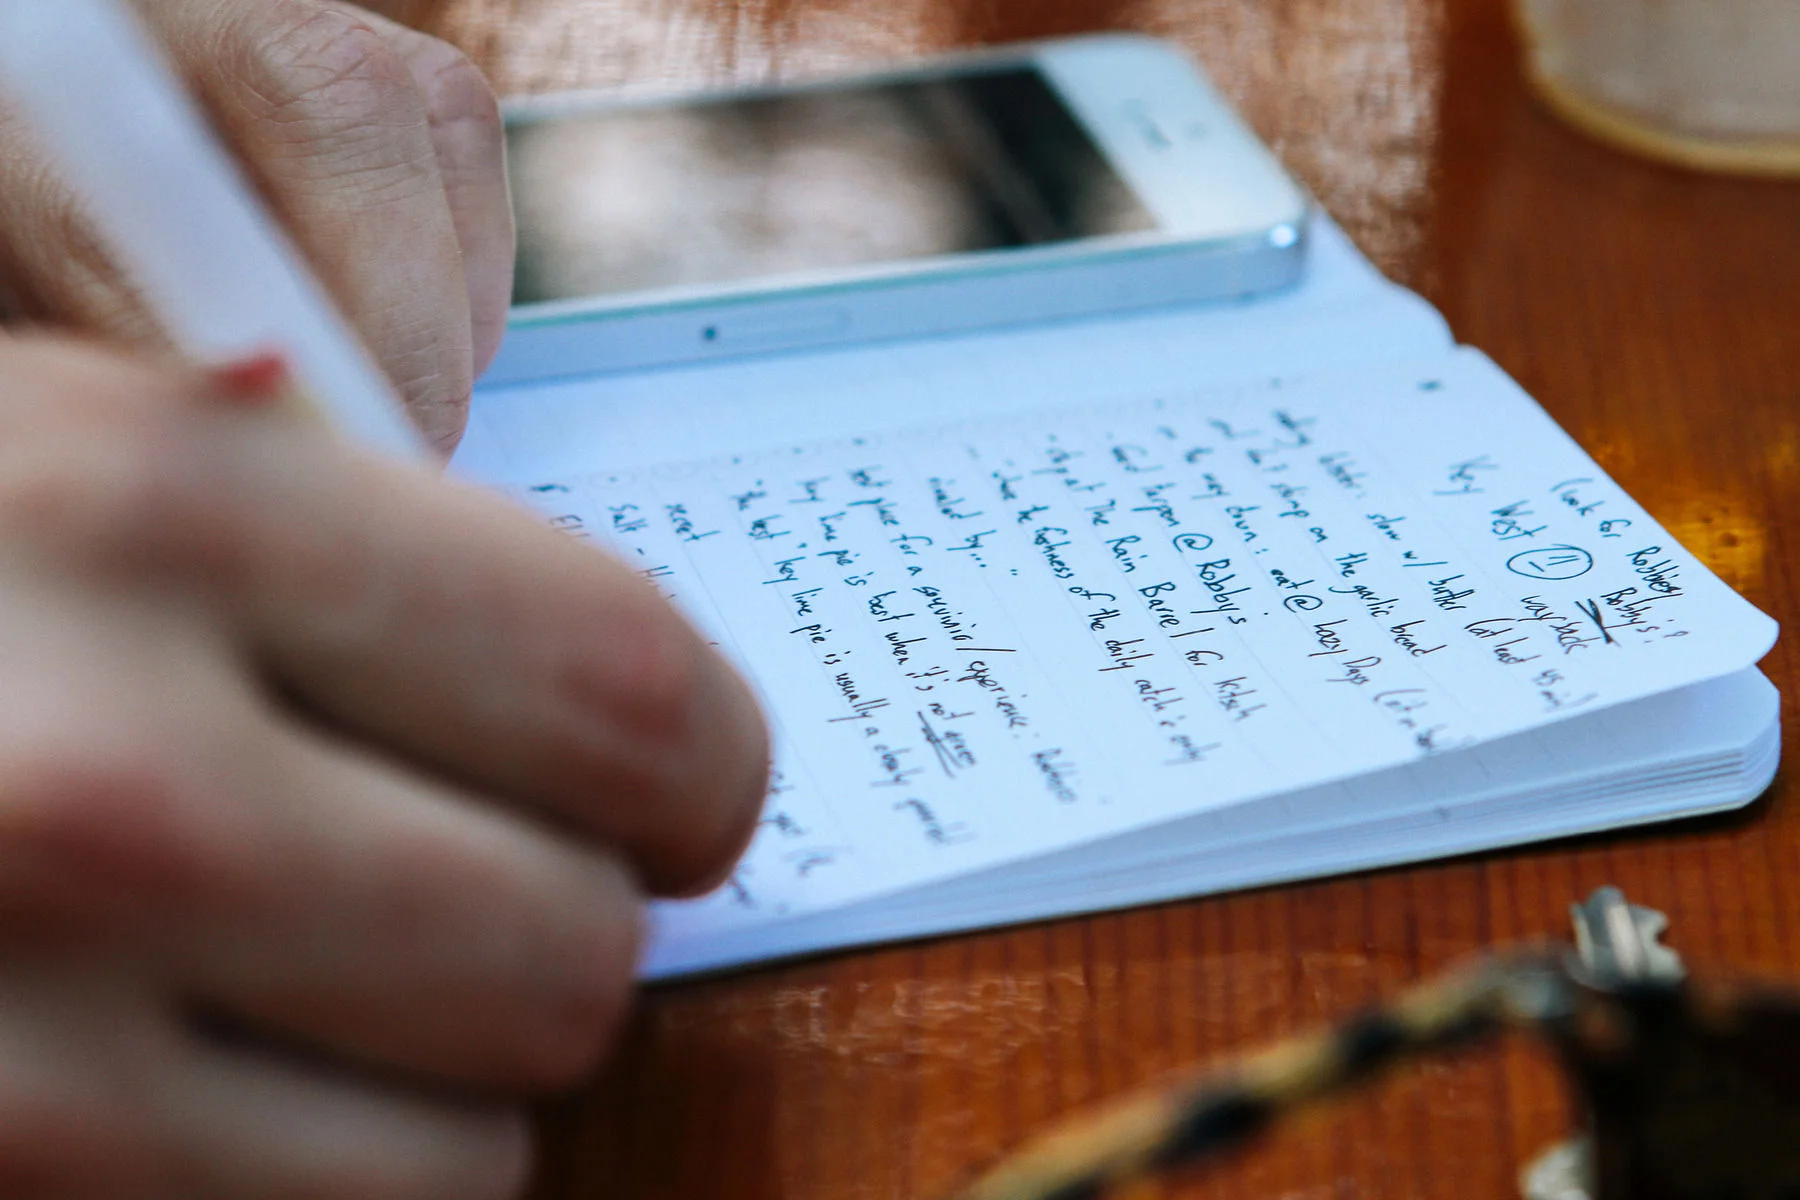 look for Robbie's? Bobby's?
Key West way back
eating lobster: slow w/ butter (at least 45 min)
and don't skimp on the garlic bread
on the way down: eat @ Lazy Days
- feed tarpon @ Robby's
- stop at The Rain Barrel for kitsch
- "where the freshness of the daily catch is only
rivaled by..."
best place for a souvenir/experience: Robbies
key lime pie is best when it's not green
"the best" key lime pie is usually a closely guarded
secret
Salt -